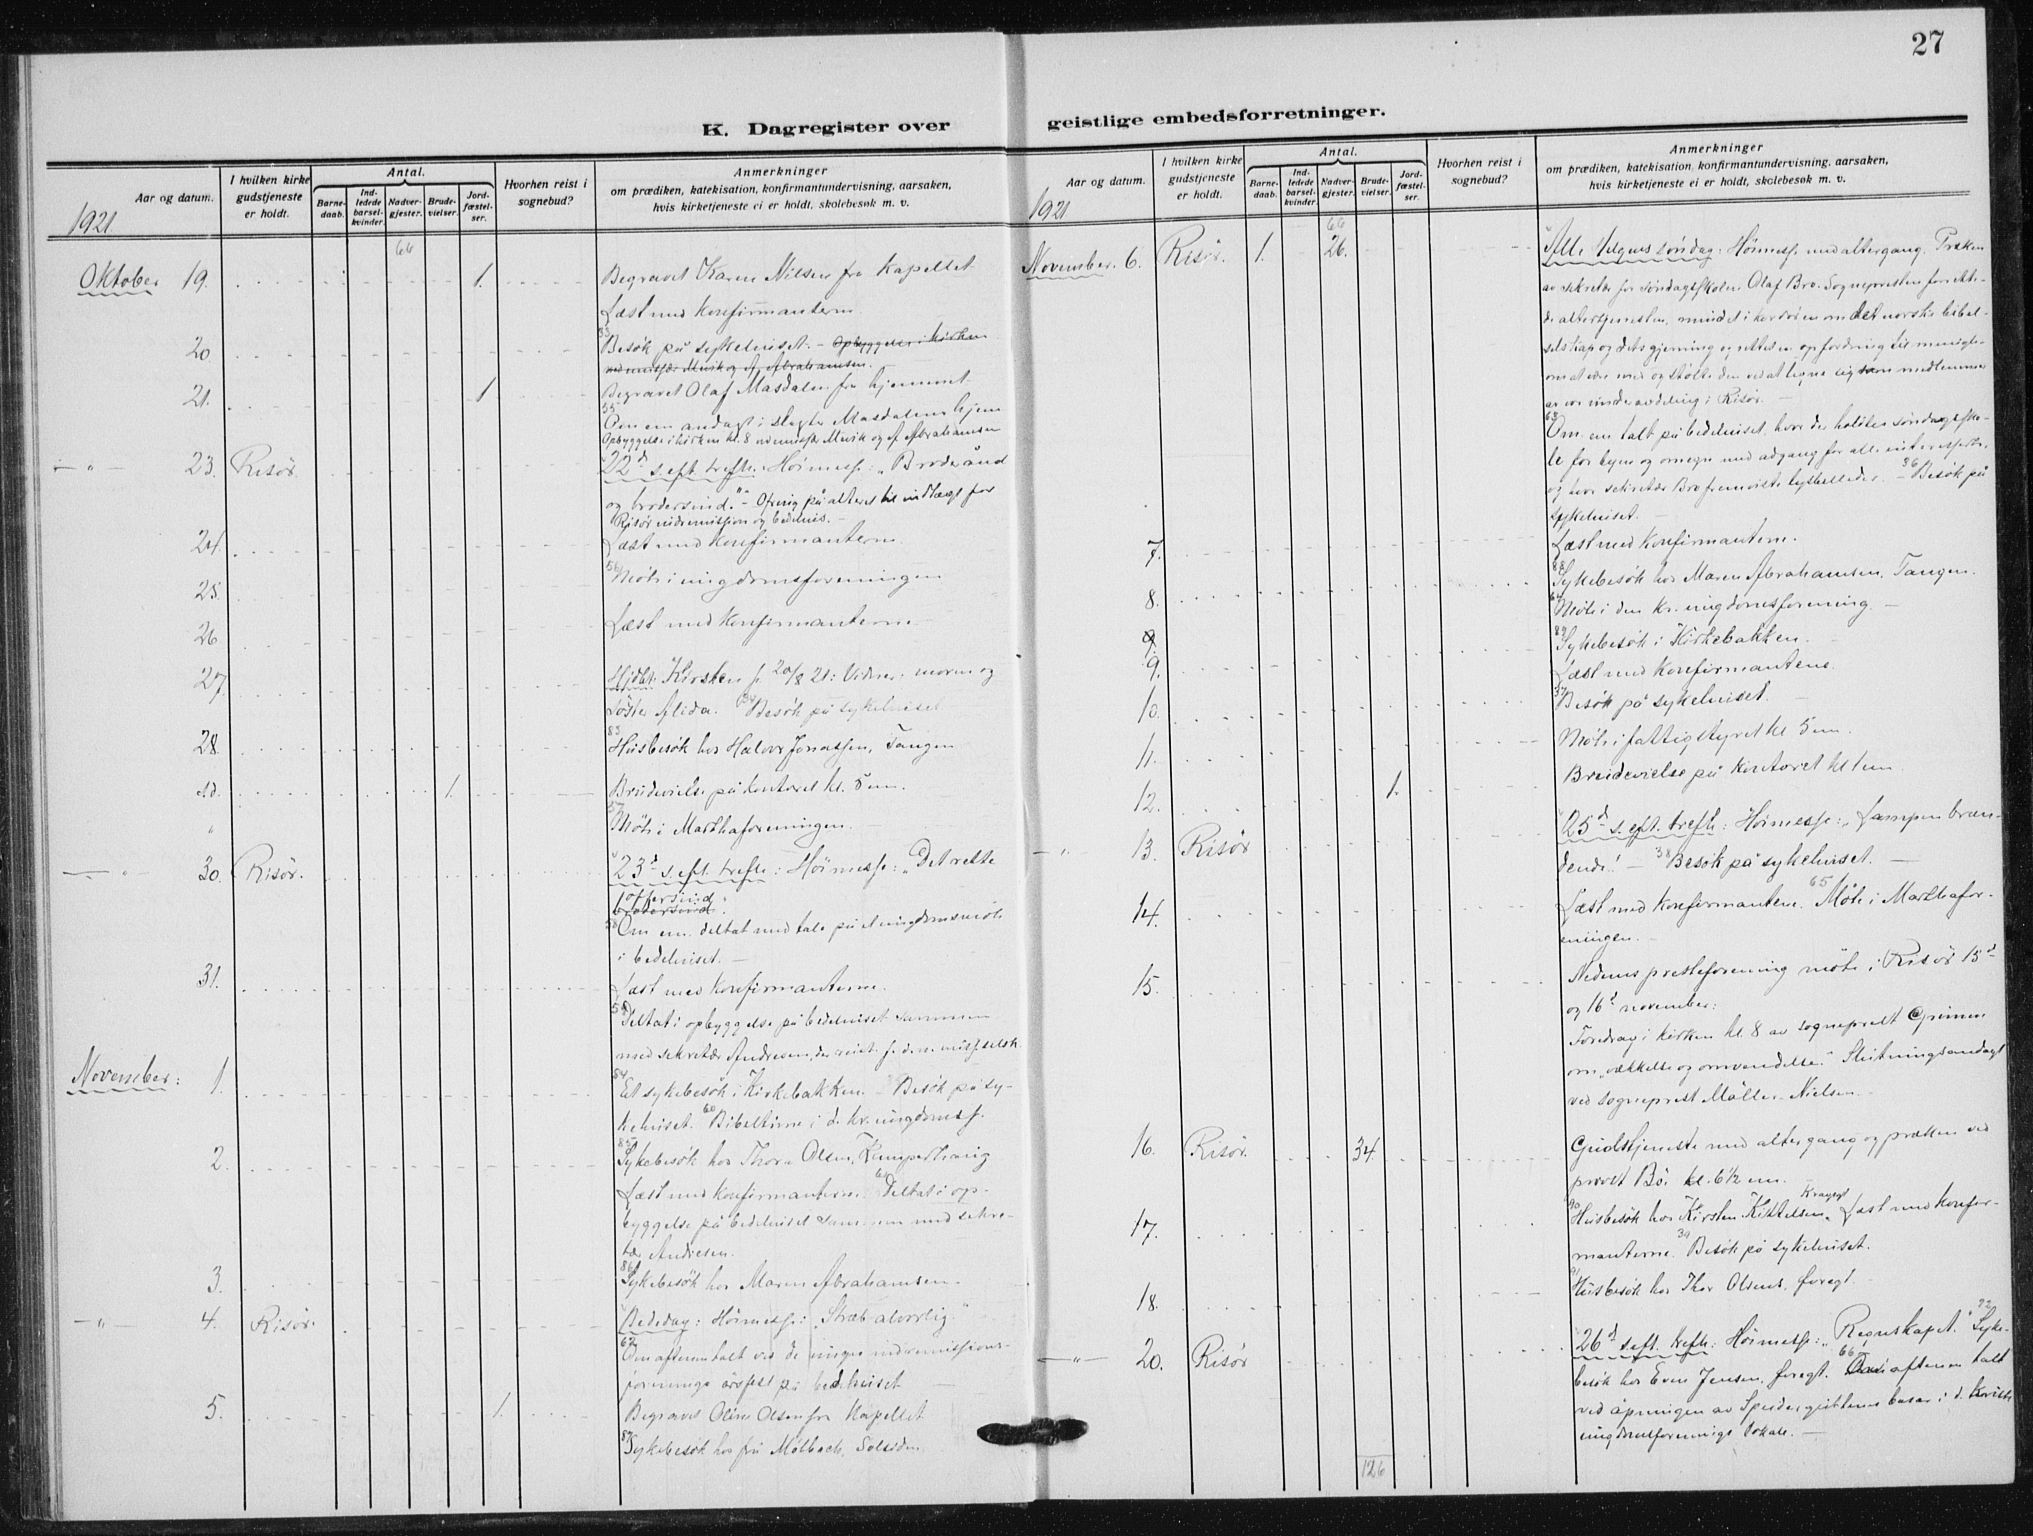 27
K. Dagregister over
geistlige embedsforretninger.
Aar og datum.
I hvilken kirke gudstjeneste er holdt.
Antal.
Barne-daab.
Ind-ledede barsel-kvinder.
Nadver-gjester.
Brude-vielser.
Jord-fæstel-ser.
Hvorhen reist i sognebud?
Anmerkninger
om prædiken, katekisation, konfirmantundervisning, aarsaken,
hvis kirketjeneste ei er holdt, skolebesøk m. v.
1921
66
Oktober 19. 1. Begravet Karen Nilsen fra Kapellet
Læst med Konfirmanterne
20 33 Besøk på sykehuset. – Opbyggelse i kirken
ved Musik og A. Abrahamsen.
21. 1 Begravet Olaf Masdalen fra hjemmet
55 Om em andagt i slagter Masdalens hjem
Opbyggelse i kirken kl. 8 ved Musik og A. Abrahamsen
– " – 23. Risør. 22d s. eft. trefh. Høimesse: "Broderånd
og brodersind." – Ofring på alteret til indtægt for
Risør indremission og bedehus. –
24. Læst med Konfirmanterne
25. 56 Møte i ungdomsforeningen
26 Læst med Konfirmanterne
27 Hjdbt. Kirsten f. 20/8 21: Vidner: moren og
søster Alida. 34 Besøk på sykehuset
28 83 Husbesøk hos Halvor Jonassen, Tangen
s.d. 1. Brudevielse på kontoret kl. 5 em.
57 Møte i Marthaforeningen.
– " – 30. Risør. 23d s. eft. trefh.: Høimesse: "Det rette
offersind
brodersind."
58 Om em. deltat med tale på ungdomsmøte
i bedehuset. –
31. Læst med Konfirmanterne.
59 Deltat i opbyggelse på bedehuset sammen
med sekretær Andresen, der reiser f. d. n. misj.selsk.
November: 1. 84 Et sykebesøk i Kirkebakken. – Besøk på sy-
kehuset. 60 Bibeltime i d. kr. ungdomsf.
2. 85 Sykebesøk hos Thora Olsen, Kamperhaug
Læst med Konfirmanterne. 61 Deltat i op-
byggelse på bedehuset sammen med sekre-
tær Andresen.
3. 86 Sykebesøk hos Maren Abrahamsen.
– " – 4. Risør. Bededag: Høimesse: "Stræb alvorlig."
62 Om aftenen talt ved de unges indremissions-
forenings årsfest på bedehuset
5. 1. Begravet Oline Olsen fra Kapellet
87 Sykebesøk hos fru Mølbach, Solsiden
Aar og datum.
I hvilken kirke gudstjeneste er holdt.
Antal.
Barne-daab.
Ind-ledede barsel-kvinder.
Nadver-gjester.
Brude-vielser.
Jord-fæstel-ser.
Hvorhen reist i sognebud?
Anmerkninger
om prædiken, katekisation, konfirmantundervisning, aarsaken,
hvis kirketjeneste ei er holdt, skolebesøk m. v.
1921
66
November. 6. Risør. 1. 26. Alle Helgens søndag: Høimesse med altergang. Præken
av sekretær for søndagsskolen Olaf Bro. Sognepresten forrette-
de altertjenesten, mindet i kordøren om det norske bibel-
selskap og dets gjerning og rettet en opfordring til menighe-
om at være med og støtte den ved at tegne sig som medlemmer
av vor underavdeling i Risør. –
63 Om em. talt på bedehuset, hvor der holdtes søndagssko-
le for byen og omegn med adgang for alle interesserte,
og hvor sekretær Bro fremviste lysbilleder. – 36 Besøk på
sykehuset. –
7. Læst med Konfirmanterne.
8. 88 Sykebesøk hos Maren Abrahamsen, Tangen.
64 Møte i den kr. ungdomsforening –
9. 89 Sykebesøk i Kirkebakken. –
9. Læst med Konfirmantene.
10. 37 Besøk på sykehuset. –
11. Møte i fattigstyret kl 5 em.
12. 1. Brudevielse på Kontoret kl 1 em
– " – 13. Risør 25d s. eft. trefh.: Høimesse: "Lampen bræn-
dende! – 38 Besøk på sykehuset. –
14. Læst med Konfirmantene. 65 Møte i Marthafor-
eningen. –
15. Nedenes presteforening møte i Risør 15d
og 16d november:
Foredrag i kirken kl. 8 av sogneprest Grimnes
om "vækkelse og omvendelse." Slutningsandagt
ved sogneprest Møller-Nielsen. –
16. Risør. 34. Gudstjeneste med altergang og præken ved
provst Bø. kl. 6½ em.
17. 90 Husbesøk hos Kirsten Kittelsen, Kragsgt. Læst med konfir-
manterne. 39 Besøk på sykehuset.
18. 91 Husbesøk hos Thor Olsens, foregt. –
– " – 20. Risør 26d s. eft. trefh.: Høimesse: "Regnskapet." 92 Syke-
besøk hos Even Jensen, foregt. 66 Om aftenen talt
ved åpningen av Speidergutternes basar i d. kristl.
ungdomsforenings lokale. –
126